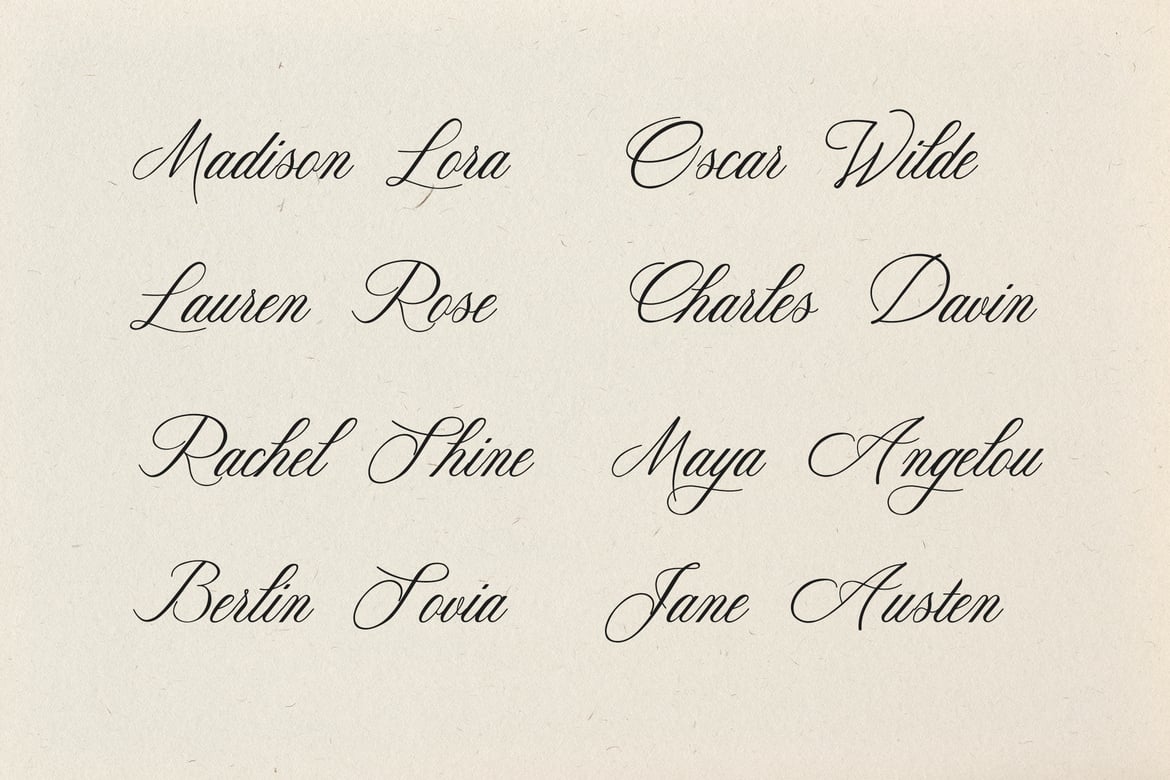 Madison Lora
Oscar Wilde
Lauren Rose
Charles Davin
Rachel Shine
Maya Angelou
Berlin Sovia
Jane Austen